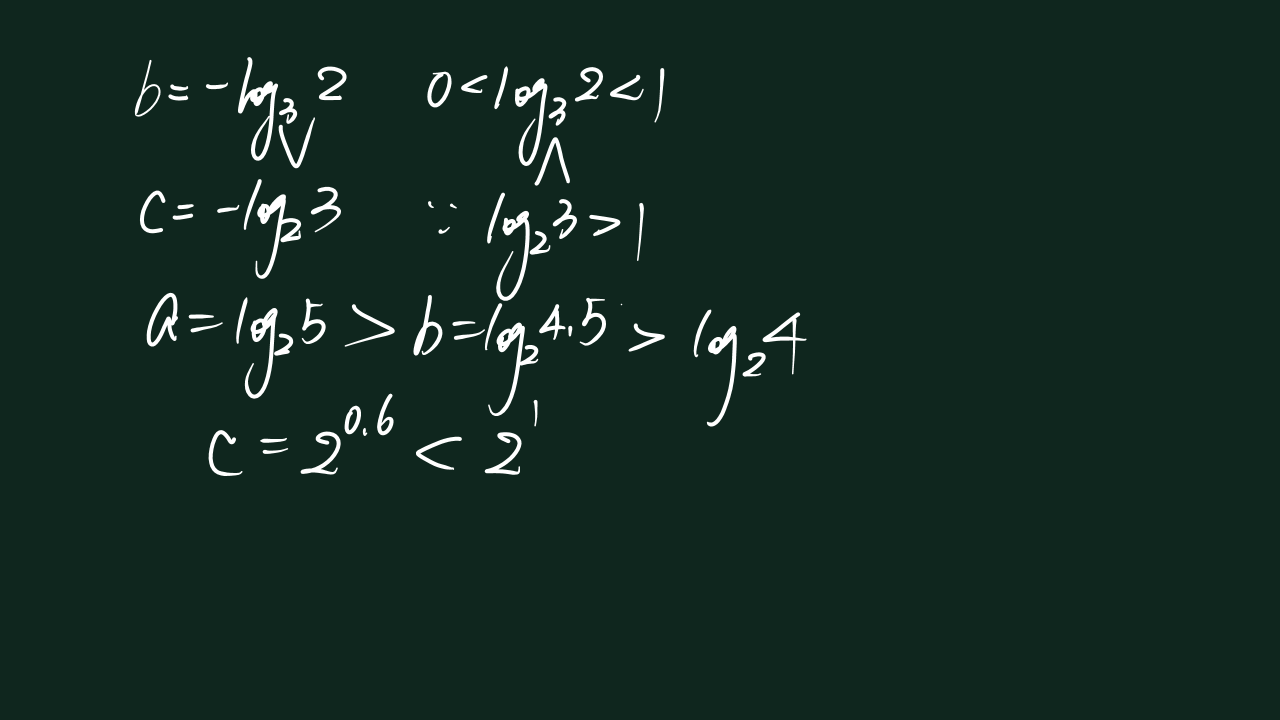 b = -log₃2 0 < log₃2 < 1
∨ ∧
c = -log₂3 ∵ log₂3 > 1
a = log₂5 > b = log₂4.5 > log₂4
c = 2^0.6 < 2^1